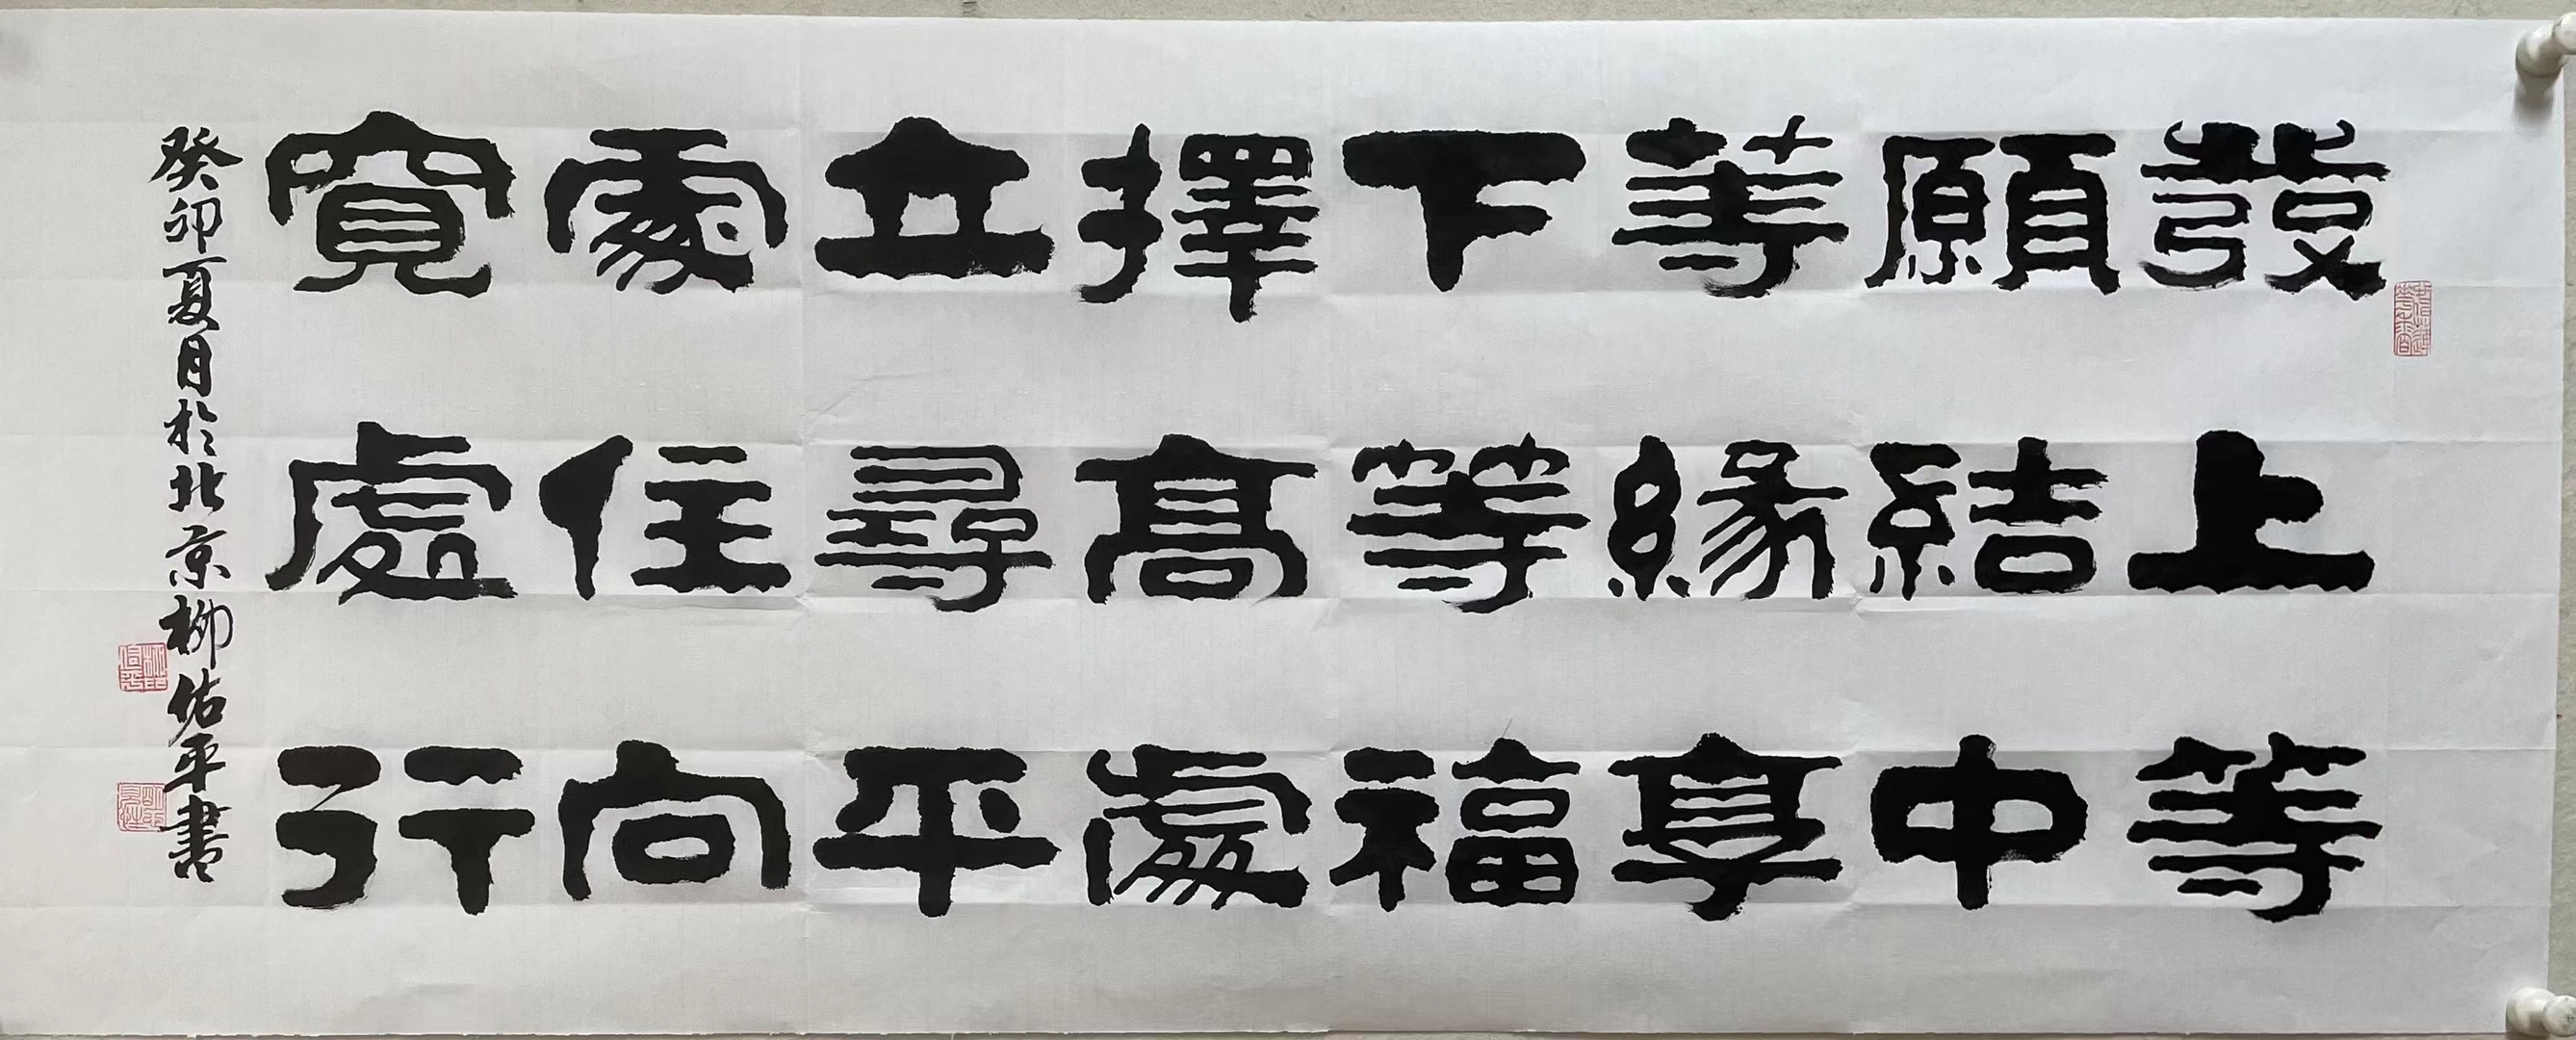 發上等
願結中
等緣享
下等福
擇髙處
立尋平
處住向
寬處行
癸卯夏月於北京柳佑平書